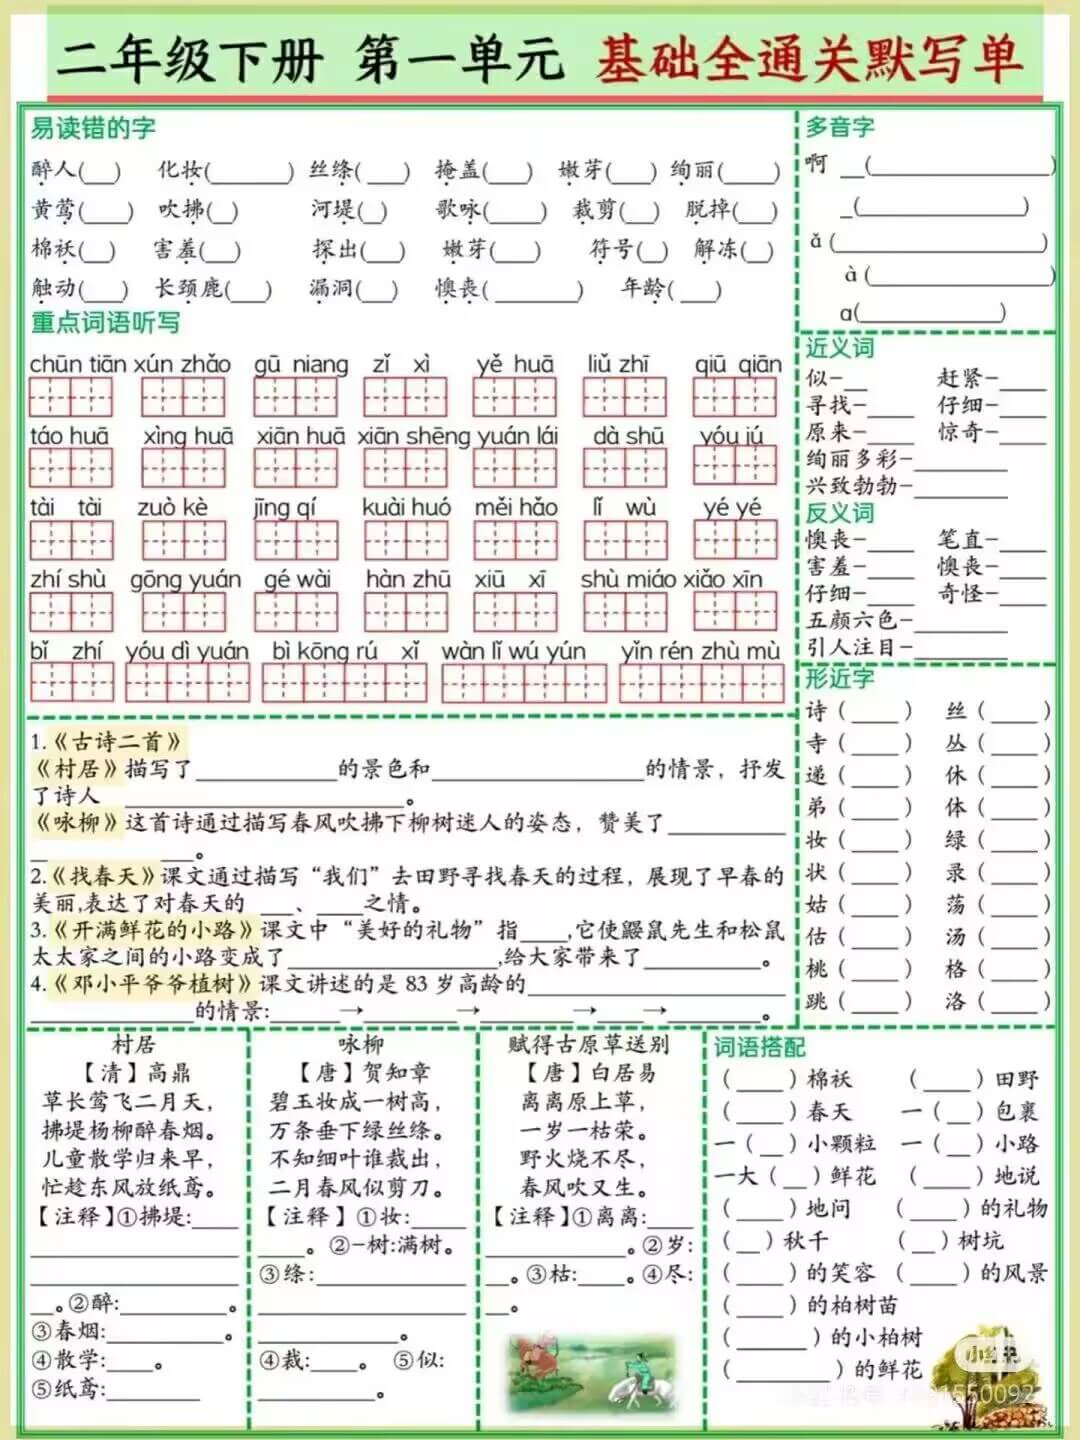 二年级下册 第一单元 基础全通关默写单
易读错的字
醉人(___) 化妆(_______) 丝绦(___) 掩盖(____) 嫩芽(____) 绚丽(_____)
黄莺(____) 吹拂(__) 河堤(__) 歌咏(_____) 裁剪(___) 脱掉(___)
棉袄(___) 害羞(___) 探出(___) 嫩芽(____) 符号(__) 解冻(__)
触动(___) 长颈鹿(___) 漏洞(___) 懊丧(_______) 年龄(___)
重点词语听写
chūn tiān xún zhǎo gū niang zǐ xì yě huā liǔ zhī qiū qiān
táo huā xìng huā xiān huā xiān shēng yuán lái dà shū yóu jú
tài tài zuò kè jīng qí kuài huó měi hǎo lǐ wù yé yé
zhí shù gōng yuán gé wài hàn zhū xiū xī shù miáo xiǎo xīn
bǐ zhí yóu dì yuán bì kōng rú xǐ wàn lǐ wú yún yǐn rén zhù mù
多音字
啊 __(________________)
_(______________)
ǎ (__________________)
à (________________)
ɑ(____________)
近义词
似-__ 赶紧-____
寻找-____ 仔细-____
原来-____ 惊奇-____
绚丽多彩-________
兴致勃勃-________
反义词
懊丧-____ 笔直-____
害羞-____ 懊丧-____
仔细-____ 奇怪-____
五颜六色-________
引人注目-________
形近字
诗（____） 丝（____）
寺（____） 丛（____）
递（____） 休（____）
弟（____） 体（____）
妆（____） 绿（____）
状（____） 录（____）
姑（____） 荡（____）
估（____） 汤（____）
桃（____） 格（____）
跳（____） 洛（____）
1.《古诗二首》
《村居》描写了____________的景色和__________________的情景，抒发
了诗人 ________________________。
《咏柳》这首诗通过描写春风吹拂下柳树迷人的姿态，赞美了__________
_ ___。
2.《找春天》课文通过描写“我们”去田野寻找春天的过程，展现了早春的
美丽,表达了对春天的 ___、____之情。
3.《开满鲜花的小路》课文中“美好的礼物”指____,它使鼹鼠先生和松鼠
太太家之间的小路变成了__________________,给大家带来了__________。
4.《邓小平爷爷植树》课文讲述的是 83 岁高龄的______________________
______________的情景:______→________→________→____→________。
村居
【清】高鼎
草长莺飞二月天，
拂堤杨柳醉春烟。
儿童散学归来早，
忙趁东风放纸鸢。
【注释】①拂堤:____
__________________
__________________
__。②醉:_________。
③春烟:__________。
④散学:____。
⑤纸鸢:________
咏柳
【唐】贺知章
碧玉妆成一树高，
万条垂下绿丝绦。
不知细叶谁裁出，
二月春风似剪刀。
【注释】①妆:_____
____。②一树:满树。
③绦:_____________
__________________
____________。
④裁:____。 ⑤似:
__________。
赋得古原草送别
【唐】白居易
离离原上草，
一岁一枯荣。
野火烧不尽，
春风吹又生。
【注释】①离离:____
____________。②岁:
__。③枯:____。④尽:
__。
词语搭配
（____）棉袄 （____）田野
（____）春天 一（__）包裹
一（__）小颗粒 一（__）小路
一大（__）鲜花 （____）地说
（____）地问 （____）的礼物
（__）秋千 （__）树坑
（____）的笑容 （____）的风景
（____）的柏树苗
（______）的小柏树
（________）的鲜花